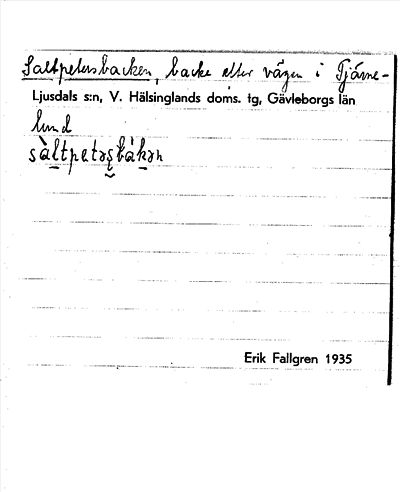 Saltpetersbacken, backe efter vägen i Tjärne-
Ljusdals s:n, V. Hälsinglands doms. tg, Gävleborgs län
lund
sàltpetəʂbákən
Erik Fallgren 1935